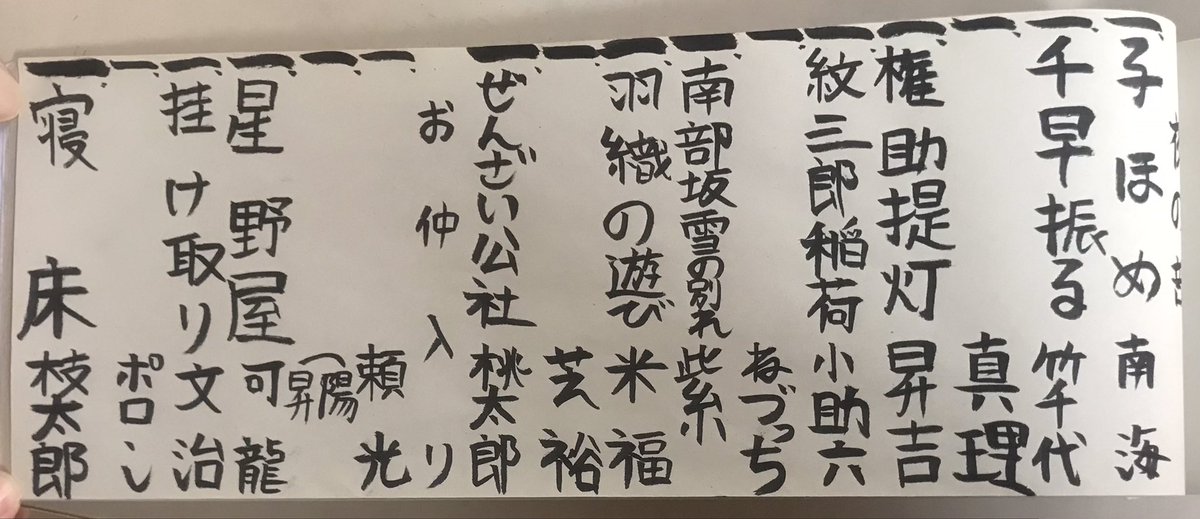 一、子ほめ 南海
一、千早振る 竹千代
一、 真理
一、権助提灯 昇吉
一、紋三郎稲荷 小助六
一、 ねづっち
一、南部坂雪の別れ 紫糸
一、羽織の遊び 米福
一、 芝裕
一、ぜんざい公社 桃太郎
お仲入り
一、 頼光
一、 (陽昇)
一、星野屋 可龍
一、掛け取り 文治
一、 ポロシ
一、寝床 枝太郎